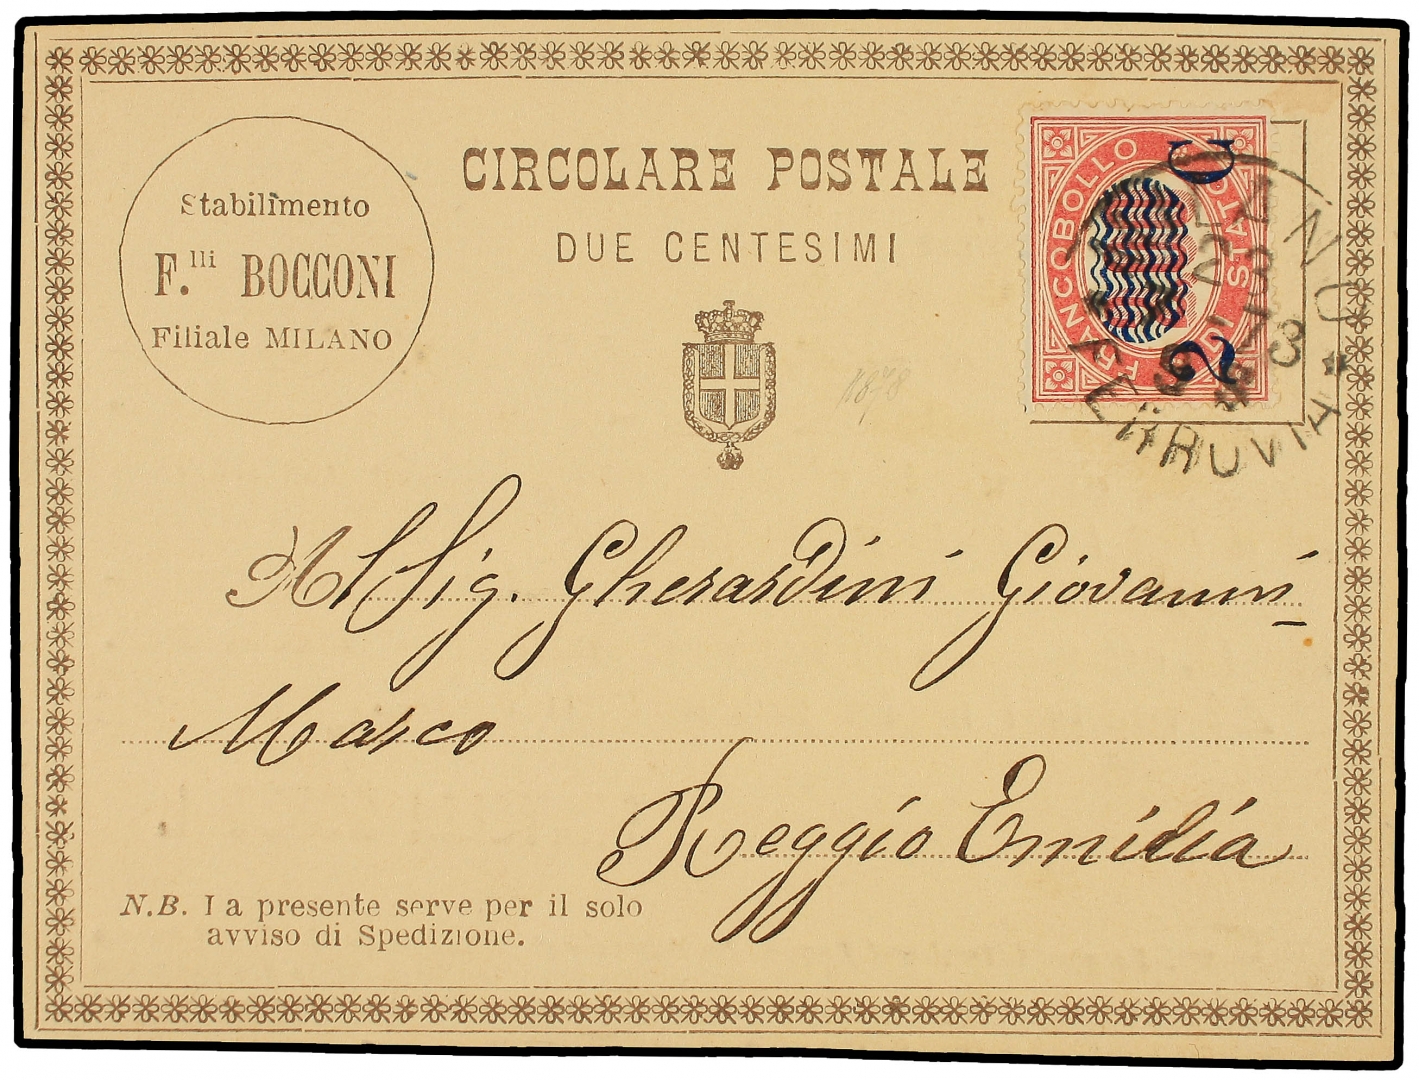 CIRCOLARE POSTALE
DUE CENTESIMI
Stabilimento
F.lli BOCCONI
Filiale MILANO
FRANCOBOLLO
DI STATO
2 C
FERROVIA
1878
Al Sig. Gherardini Giovanni
Marco
Reggio Emilia
N.B. La presente serve per il solo
avviso di Spedizione.